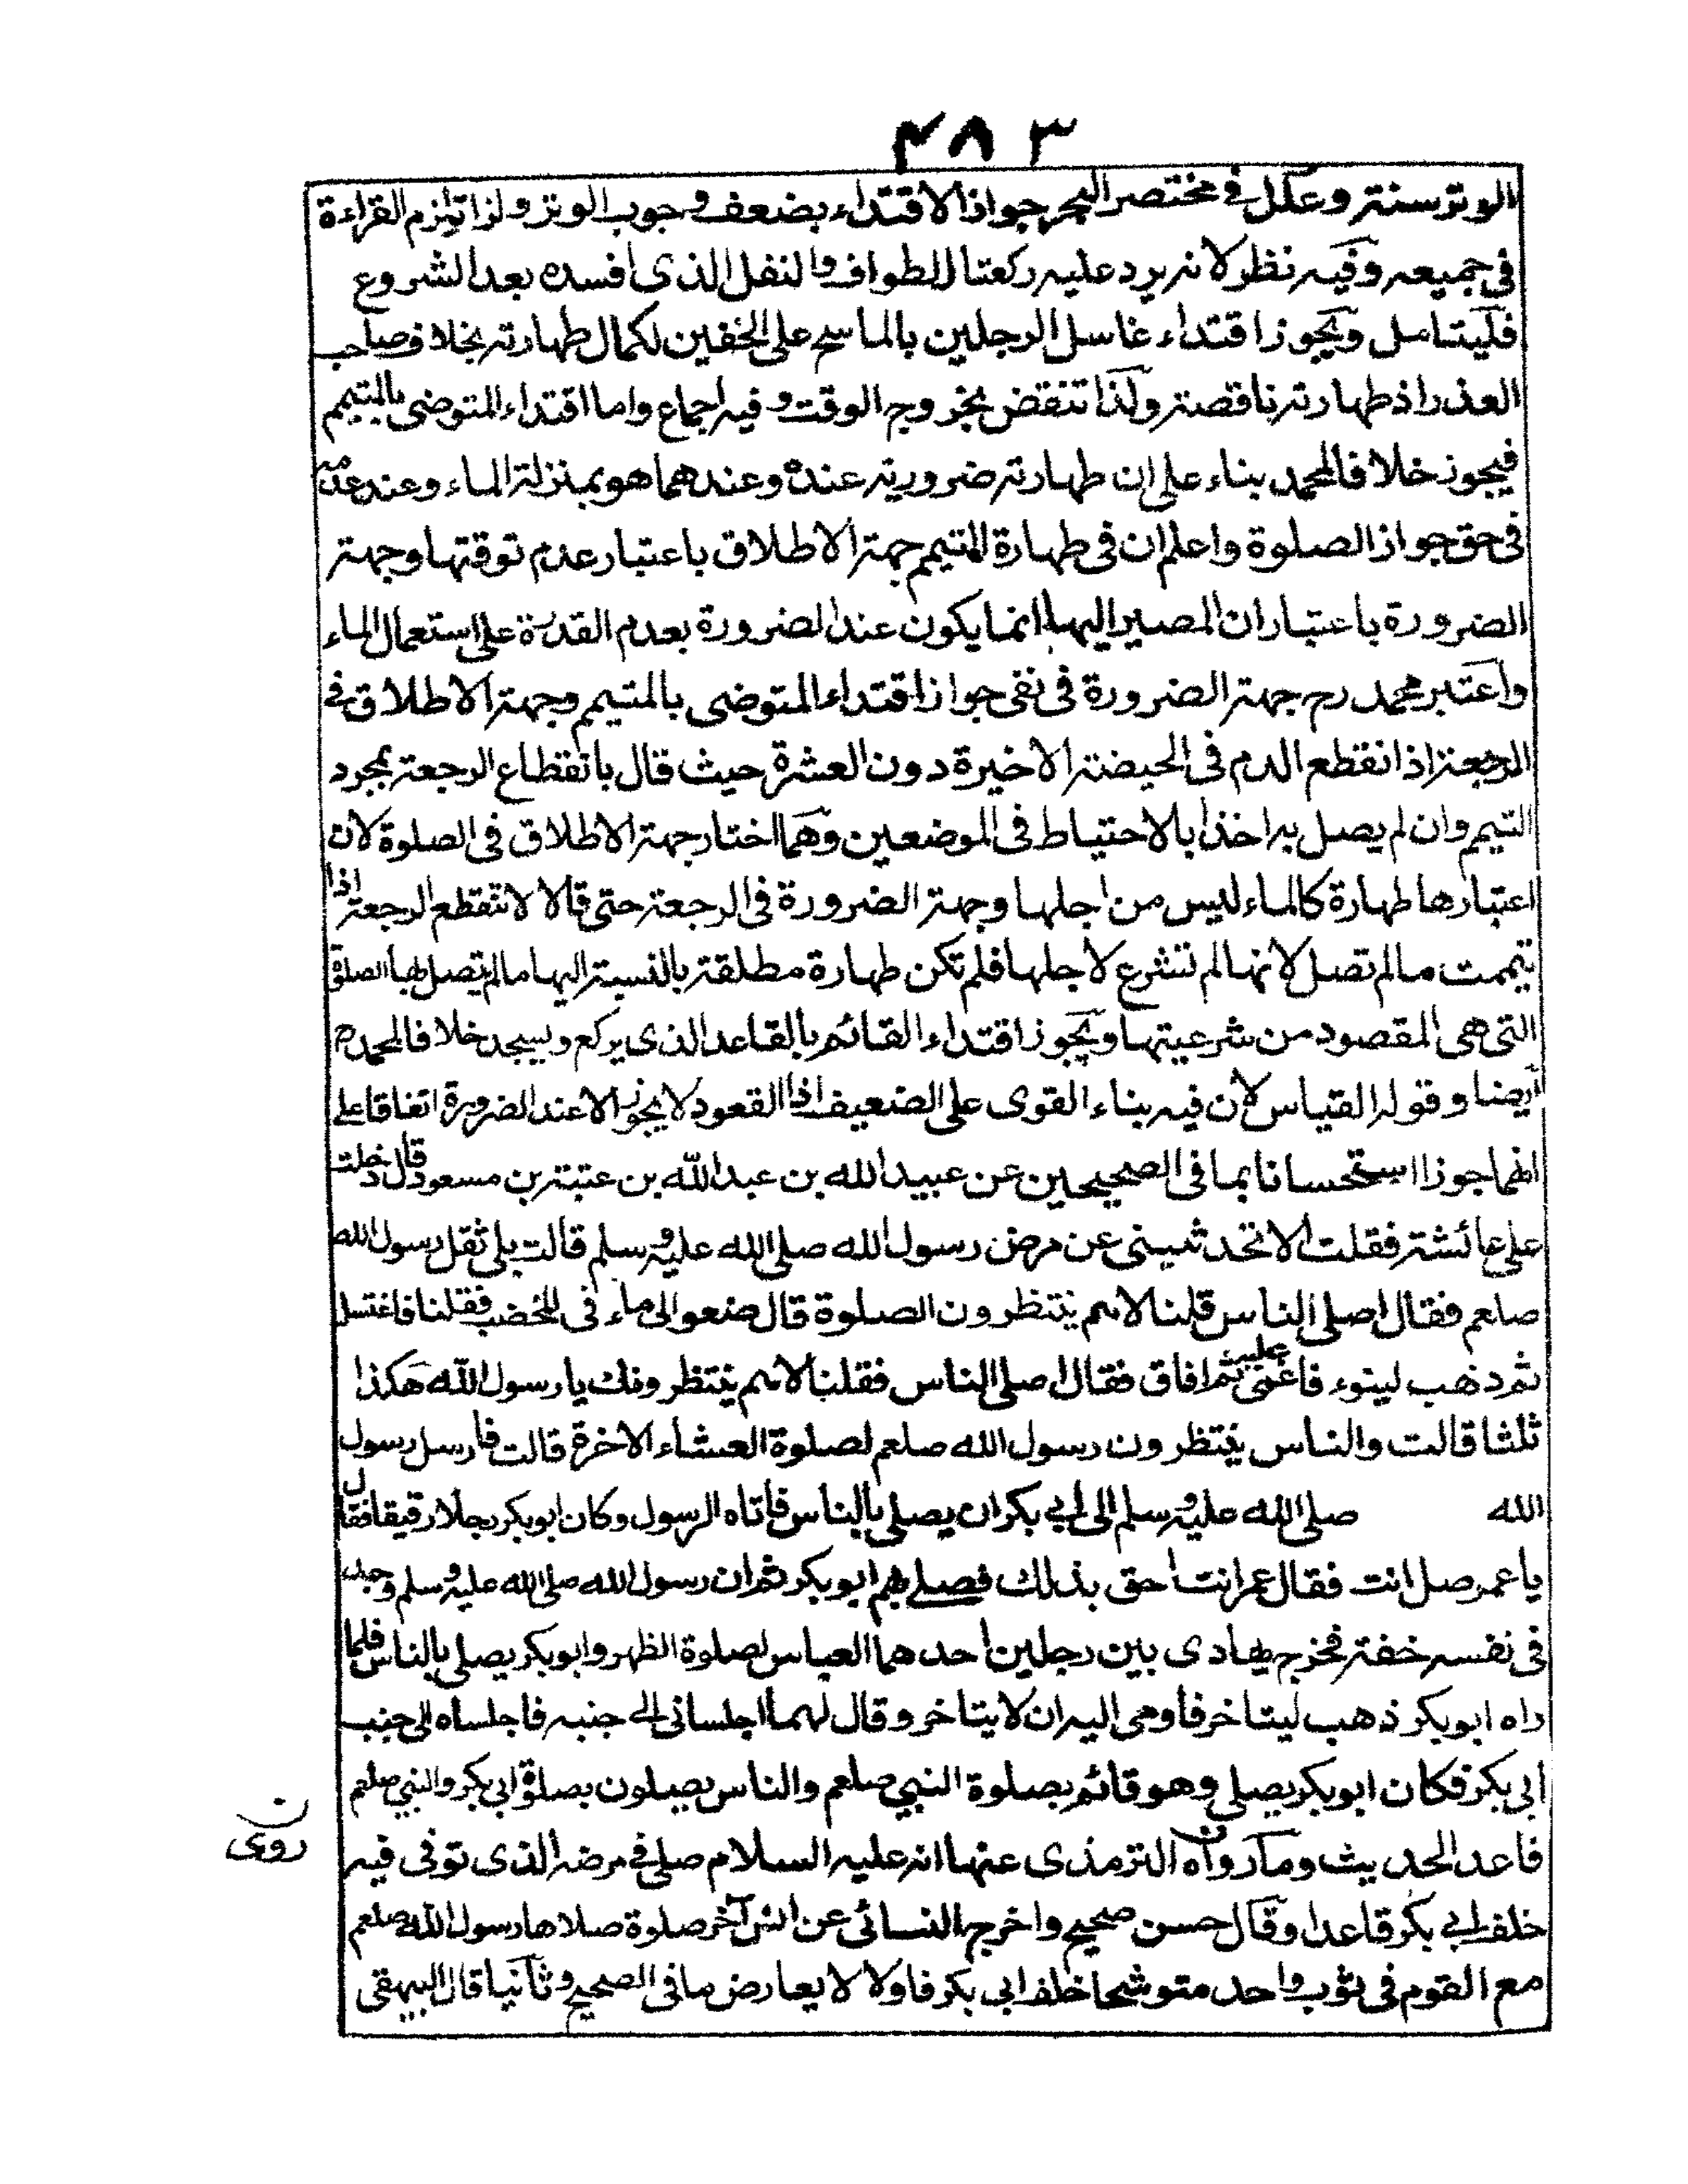 ٤٨٣
الوتر سنة وعلل في مختصر البحر جواز الاقتداء بضعف وجوب الوتر ولذا تلزم القراءة
في جميعه وفيه نظر لانه يرد عليه ركعتا الطواف والنفل الذي افسده بعد الشروع
فليتامل ويجوز اقتداء غاسل الرجلين بالماسح على الخفين لكمال طهارته بخلاف صاحب
العذر اذ طهارته ناقصة ولذا تنقض بخروج الوقت وفيه اجماع واما اقتداء المتوضى بالمتيمم
فيجوز خلافا لمحمد بناء على ان طهارته ضرورية عنده وعندهما هو بمنزلة الماء وعند عدمه
في حق جواز الصلوة واعلم ان في طهارة المتيمم جهة الاطلاق باعتبار عدم توقتها وجهة
الضرورة باعتبار ان المصير اليها انما يكون عند الضرورة بعدم القدرة على استعمال الماء
واعتبر محمد رح جهة الضرورة في نفى جواز اقتداء المتوضى بالمتيمم وجهة الاطلاق في
الرجعة اذا انقطع الدم في الحيضة الاخيرة دون العشرة حيث قال بانقطاع الرجعة بمجرد
التيمم وان لم يصل به اخذا بالاحتياط في الموضعين وهما اختار جهة الاطلاق في الصلوة لان
اعتبارها طهارة كالماء ليس من اجلها وجهة الضرورة في الرجعة حتى قالا لا تنقطع الرجعة اذا
تيممت ما لم تصل لانها لم تشرع لاجلها فلم تكن طهارة مطلقة بالنسبة اليها ما لم يتصل بها الصلوة
التي هي المقصود من شرعيتها ويجوز اقتداء القائم بالقاعد الذي يركع ويسجد خلافا لمحمد رح
ايضا وقوله القياس لان فيه بناء القوى على الضعيف اذا القعود لا يجوز الا عند الضرورة اتفاقا على
انهما جوزا استحسانا بما في الصحيحين عن عبيد الله بن عبد الله بن عتبة بن مسعود قال دخلت
على عائشة فقلت الا تحدثيني عن مرض رسول الله صلى الله عليه وسلم قالت بلى ثقل رسول الله
صلعم فقال اصلى الناس قلنا لا هم ينتظرون الصلوة قال ضعوا لى ماء في المخضب فقلنا فاغتسل
ثم ذهب لينوء فاغمى عليه ثم افاق فقال اصلى الناس فقلنا لا هم ينتظرونك يا رسول الله هكذا
ثلثا قالت والناس ينتظرون رسول الله صلعم لصلوة العشاء الاخرة قالت فارسل رسول
الله صلى الله عليه وسلم الى ابي بكر ان يصلى بالناس فاتاه الرسول وكان ابو بكر رجلا رقيقا فقال
يا عمر صل انت فقال عمر انت احق بذلك فصلى بهم ابو بكر ثم ان رسول الله صلى الله عليه وسلم وجد
في نفسه خفة فخرج يهادى بين رجلين احدهما العباس لصلوة الظهر وابو بكر يصلى بالناس فلما
راه ابو بكر ذهب ليتاخر فأومى اليه ان لا يتاخر وقال لهما اجلسانى الى جنبه فاجلساه الى جنب
ابي بكر فكان ابو بكر يصلى وهو قائم بصلوة النبي صلعم والناس يصلون بصلوة ابي بكر والنبي صلعم
قاعد الحديث وما رواه الترمذى عنها انه عليه السلام صلى في مرضه الذى توفى فيه
خلف ابي بكر قاعدا وقال حسن صحيح واخرج النسائى عن انس آخر صلوة صلاها رسول الله صلعم
مع القوم في ثوب واحد متوشحا خلف ابى بكر فاولا لا يعارض ما في الصحيح وثانيا قال البيهقى
ن
روى